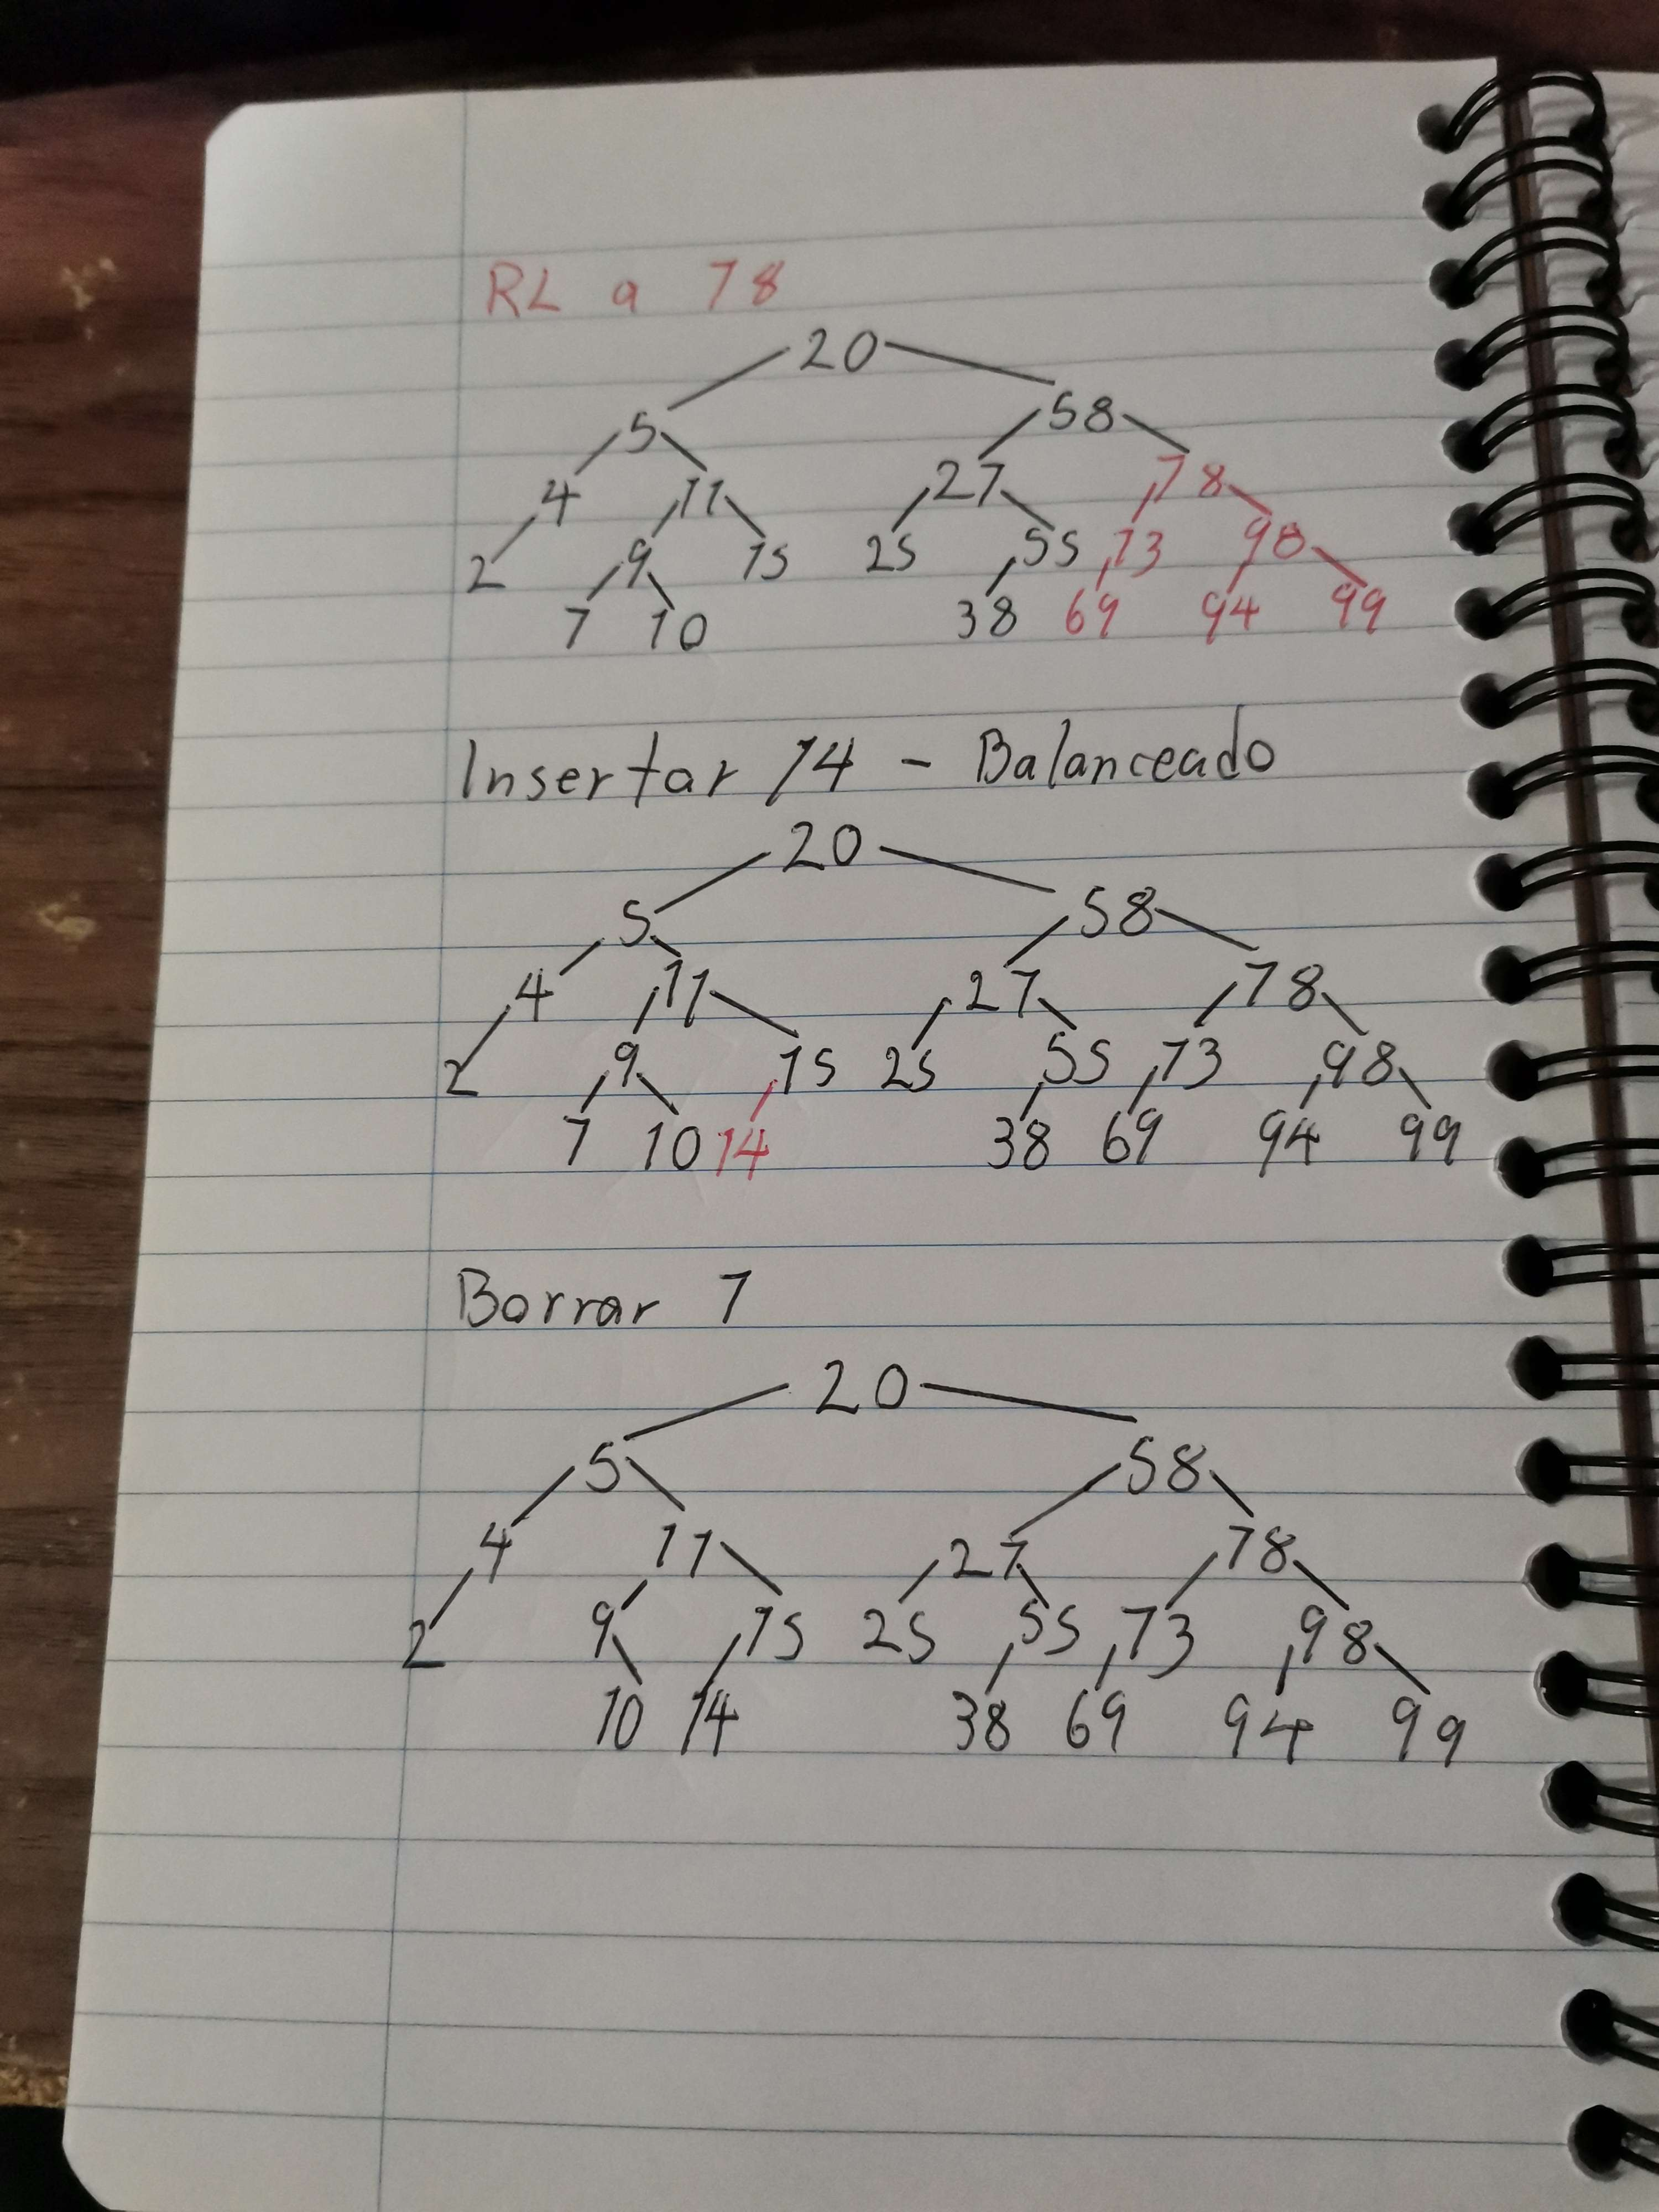 RL a 78
20
5 58
4 11 27 78
2 9 15 25 55 73 98
7 10 38 69 94 99
Insertar 14 - Balanceado
20
5 58
4 11 27 78
2 9 15 25 55 73 98
7 10 14 38 69 94 99
Borrar 7
20
5 58
4 11 27 78
2 9 15 25 55 73 98
10 14 38 69 94 99